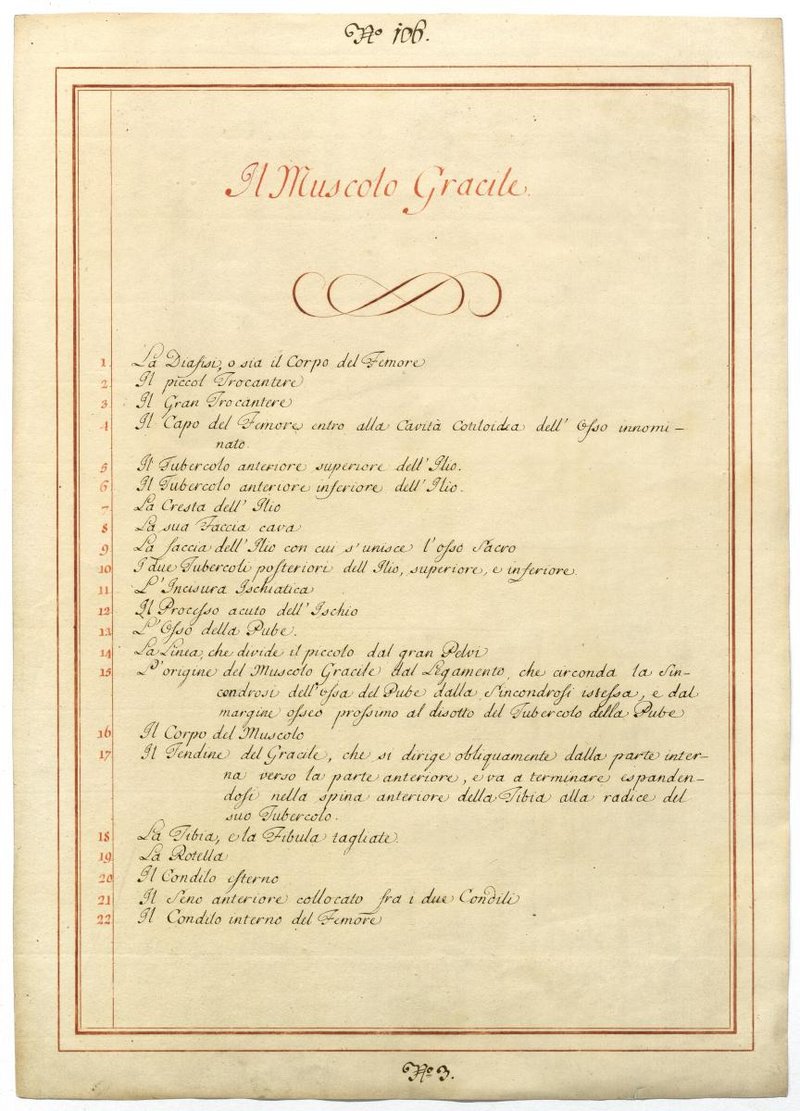 Nº 106.
Il Muscolo Gracile.
1 La Diafisi, o sia il Corpo del Femore
2 Il piccol Trocantere
3 Il Gran Trocantere
4 Il Capo del Femore entro alla Cavità Cotiloidea dell' Oſso innomi-
nato
5 Il Tubercolo anteriore superiore dell' Ilio.
6 Il Tubercolo anteriore inferiore dell' Ilio.
7 La Cresta dell' Ilio
8 La sua Faccia cava
9 La faccia dell' Ilio con cui s'unisce l'oſso Sacro
10 I due Tubercoli poſteriori dell Ilio, superiore, e inferiore.
11 L'Incisura Ischiatica
12 Il Proceſso acuto dell' Ischio
13 L'Oſso della Pube.
14 La Linea, che divide il piccolo dal gran Pelvi
15 L'origine del Muscolo Gracile dal Legamento, che circonda la Sin-
condrosi dell'oſsa del Pube dalla Sincondroſi isteſsa, e dal
margine oſseo proſsimo al disotto del Tubercolo della Pube
16 Il Corpo del Muscolo
17 Il Tendine del Gracile, che si dirige obliquamente dalla parte inter-
na verso la parte anteriore, e va a terminare espanden-
dosi nella spina anteriore della Tibia alla radice del
suo Tubercolo.
18 La Tibia, e la Fibula tagliate.
19 La Rotella
20 Il Condilo eſterno
21 Il Seno anteriore collocato fra i due Condili
22 Il Condilo interno del Femore
Nº 3.